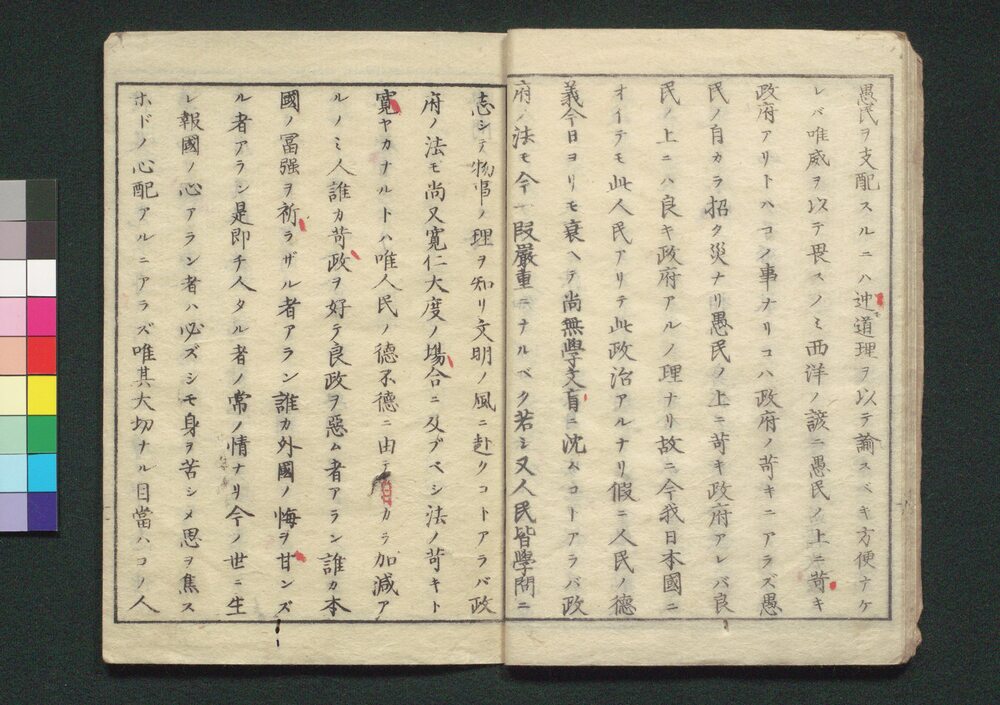 愚民ヲ支配スルニハ迚道理ヲ以テ諭スベキ方便ナケ
レバ唯威ヲ以テ畏スノミ西洋ノ諺ニ愚民ノ上ニ苛キ
政府アリトハコノ事ナリコハ政府ノ苛キニアラズ愚
民ノ自カラ招ク災ナリ愚民ノ上ニ苛キ政府アレバ良
民ノ上ニハ良キ政府アルノ理ナリ故ニ今我日本國ニ
オイテモ此人民アリテ此政治アルナリ假ニ人民ノ德
義今日ヨリモ衰ヘテ尚無學文盲ニ沈ムコトアラバ政
府ノ法モ今一段嚴重ニナルベク若シ又人民皆學問ニ
志シテ物事ノ理ヲ知リ文明ノ風ニ赴クコトアラバ政
府ノ法モ尚又寛仁大度ノ場合ニ及ブベシ法ノ苛キト
寛ヤカナルトハ唯人民ノ德不德ニ由テ自カラ加減ア
ルノミ人誰カ苛政ヲ好テ良政ヲ惡ム者アラン誰カ本
國ノ冨强ヲ祈ラザル者アラン誰カ外國ノ悔ヲ甘ンズ
ル者アラン是即チ人タル者ノ常ノ情ナリ今ノ世ニ生
レ報國ノ心アラン者ハ必ズシモ身ヲ苦シメ思ヲ焦ス
ホドノ心配アルニアラズ唯其大切ナル目當ハコノ人